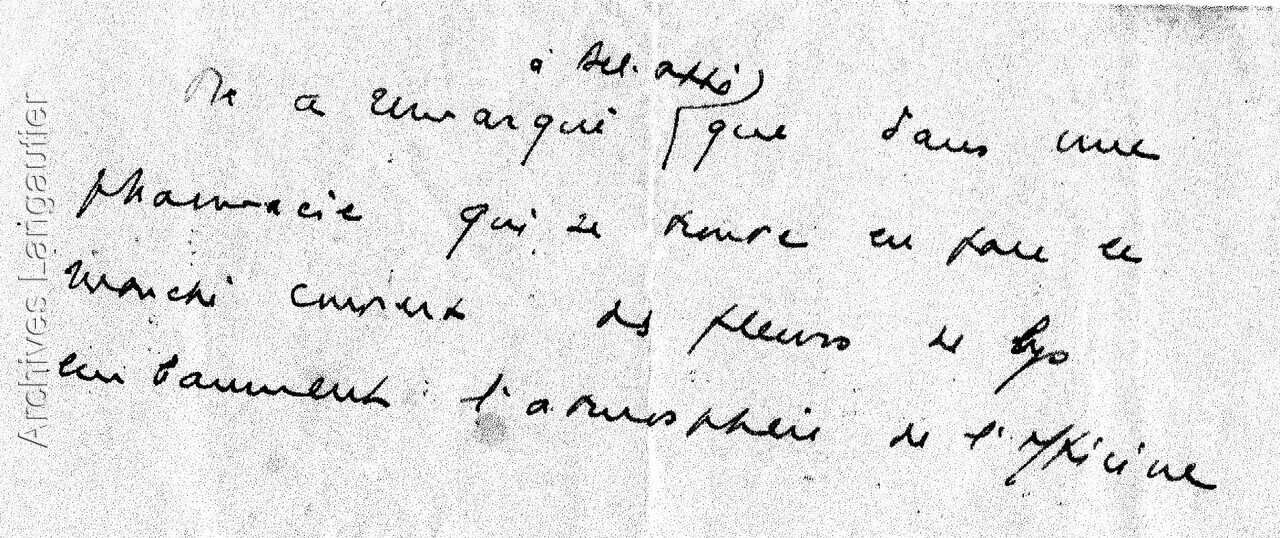 à Bel-Abbès
On a remarqué que dans une
pharmacie qui se trouve en face le
marché couvert des fleurs de lys
embaument l'atmosphère de l'officine
Archives Larigautier